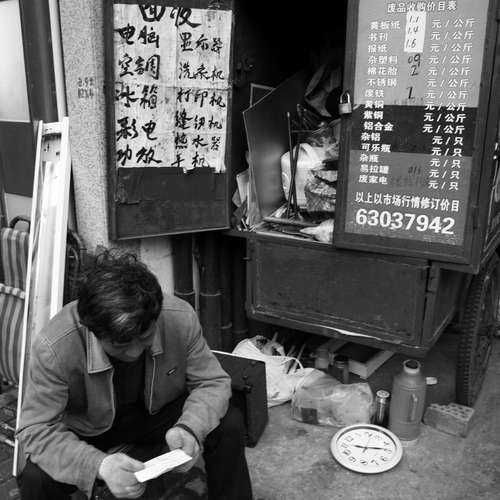 回收
电脑 显示器
空调 洗衣机
冰箱 打印机
彩电 缝纫机
功放 热水机
废品收购价目表
黄板纸 1.1 元/公斤
书刊 1.4 元/公斤
报纸 1.6 元/公斤
杂塑料 09 元/公斤
棉花胎 2 元/公斤
不锈钢 元/公斤
废铁 1 元/公斤
黄铜 元/公斤
紫铜 元/公斤
铝合金 元/公斤
杂铝 元/公斤
可乐瓶 元/只
杂瓶 元/只
易拉罐 元/只
废家电 元/只
以上以市场行情修订价目
63037942